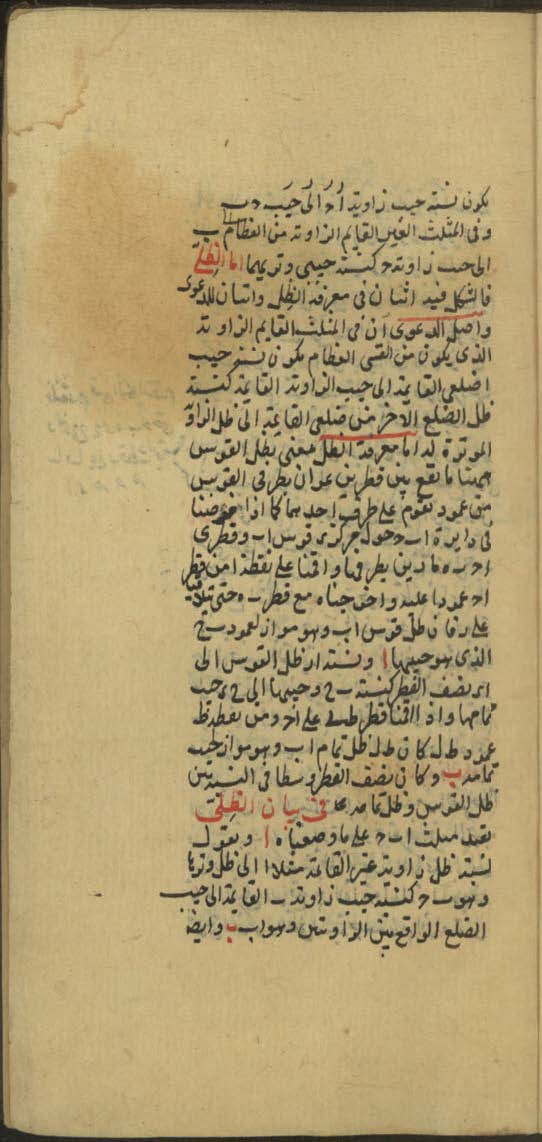 يكون نسبة جيب زاوية ا ر الى جيب
وفى المثلث الغير القايم الزاوية من العظام
الى جيب زاوية ح كنسبة جيبى وتريهما اما الظلى
فالشكل فيه اثنان فى معرفة الظل واثنان للدعوى
واصل الدعوى ان فى المثلث القايم الزاوية
الذى يكون من القسى العظام يكون نسبة جيب
احد ضلعى القايمة الى جيب الزاوية القايمة كنسبة
ظل الضلع الاخر من ضلعى القايمة الى ظل الزاوية
الموترة له اما معرفة الظل معنى بظل القوس
ههنا ما يقع بين قطرين يمران بطرفى القوس
من عمود يقوم على طرف احدهما كما اذا فرضنا
فى دايرة ا ب ح حول مركز ه قوس ا ب وقطرى
ا ح ب ه مارين بطرفيها واقمنا على نقطة ا من قطر
ا ح عمودا عليه واخرجناه مع قطر ب ه حتى تلاقيا
على ر فان ظل قوس ا ب وهو مواز لعمود ب ح
الذى هو جيبها ا ونسبة ا ر ظل القوس الى
ا ه نصف القطر كنسبة ب ح جيبها الى ح ه جيب
تمامها واذا اقمنا قطر ط ه على ا ح ومن نقطة ط
عمود ط ك كان ط ك ظل تمام ا ب وهو مواز لجيب
تمامه ب وكان نصف القطر وسطا فى النسبة بين
ظل القوس وظل تمامه فى بيان الظلى
نعيد مثلث ا ب ح على ما وصفناه ا ونقول
نسبة ظل زاوية غير القائمة مثلا ا الى ظل وترها
وهو ب ح كنسبة جيب زاوية ب القايمة الى جيب
الضلع الواقع بين الزاويتين وهو ا ب ب وايضا